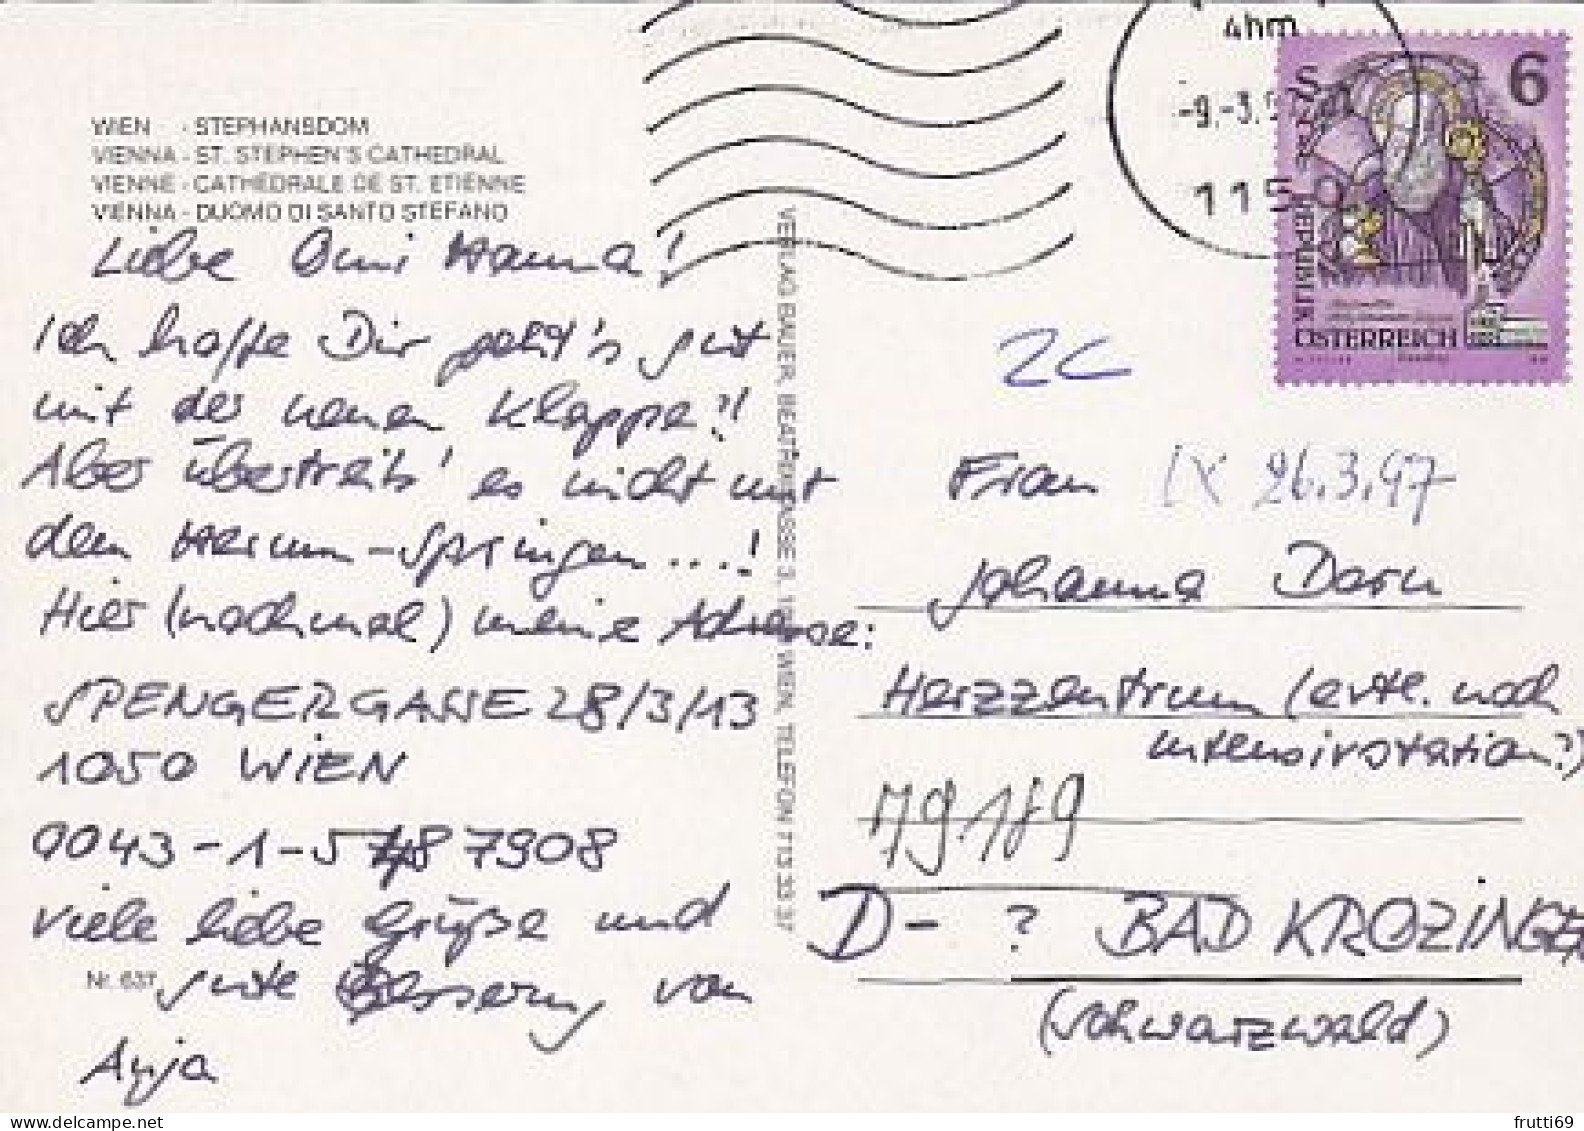 WIEN - STEPHANSDOM
VIENNA - ST. STEPHEN'S CATHEDRAL
VIENNE - CATHEDRALE DE ST. ETIENNE
VIENNA - DUOMO DI SANTO STEFANO
Liebe Omi Hanna!
Ich hoffe Dir geht's gut
mit der neuen Klappe?!
Aber übertreib' es nicht mit
dem Herum-Springen...!
Hier (nochmal) meine Adresse:
SPENGERGASSE 28/3/13
1050 WIEN
0043-1-5487908
viele liebe Grüße und
gute Besserung von
Anja
Nr. 637
VERLAG BAUER, BEATRIXGASSE 3, WIEN, TELEFON 713 33 37
4hm
-9.-3.9
1150
S 6
REPUBLIK
ÖSTERREICH
2C
Frau
IX 26.3.97
Johanna Dorn
Herzzentrum (evtl. noch
Intensivstation?)
79.189
D- ? BAD KROZINGEN
(Schwarzwald)
frutti69